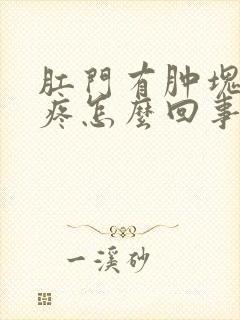 肛門有肿塊
疼怎麼回事
一溪砂